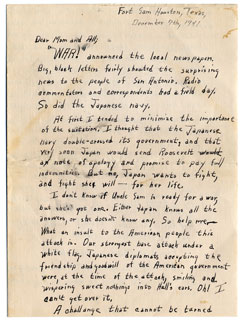 Fort Sam Houston, Texas,
December 7th, 1941.
Dear Mom and All,
"WAR!" announced the local newspaper.
Big, black letters fairly shouted the surprising
news to the people of San Antonio. Radio
commentators and correspondents had a field day.
So did the Japanese navy.
At first I tended to minimize the importance
of the situation. I thought that the Japanese
navy double-crossed its government, and that
very soon Japan would send Roosevelt
a note of apology and promise to pay full
indemnities. But no, Japan wants to fight,
and fight she will — for her life.
I don't know if Uncle Sam is ready for a war,
but he's got one. Either Japan knows all the
answers, or she doesn't know any. So help me,
What an insult to the American people this
attack is. Our strongest base attack under a
white flag, Japanese diplomats accepting the
friendship and goodwill of the American government
were, at the time of the attack, smiling and
whispering sweet nothings into Hull's ears. Oh! I
can't get over it.
A challenge that cannot be turned